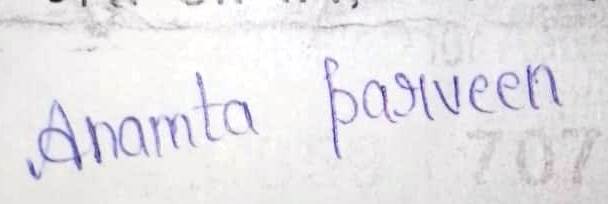 Anamta parveen
707